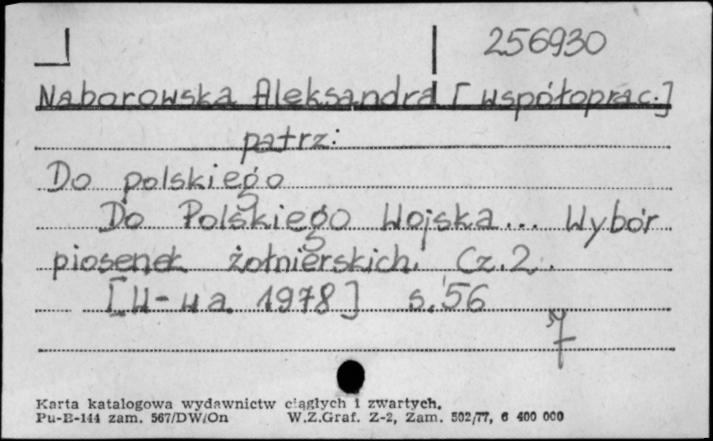 256930
Naborowska Aleksandra [współoprac.]
patrz:
Do polskiego
Do Polskiego Wojska... Wybór
piosenek żołnierskich. Cz. 2.
[W-wa 1978] s. 56
Karta katalogowa wydawnictw ciągłych i zwartych.
Pu-B-144 zam. 567/DW/On W.Z.Graf. Z-2, Zam. 502/77, 6 400 000